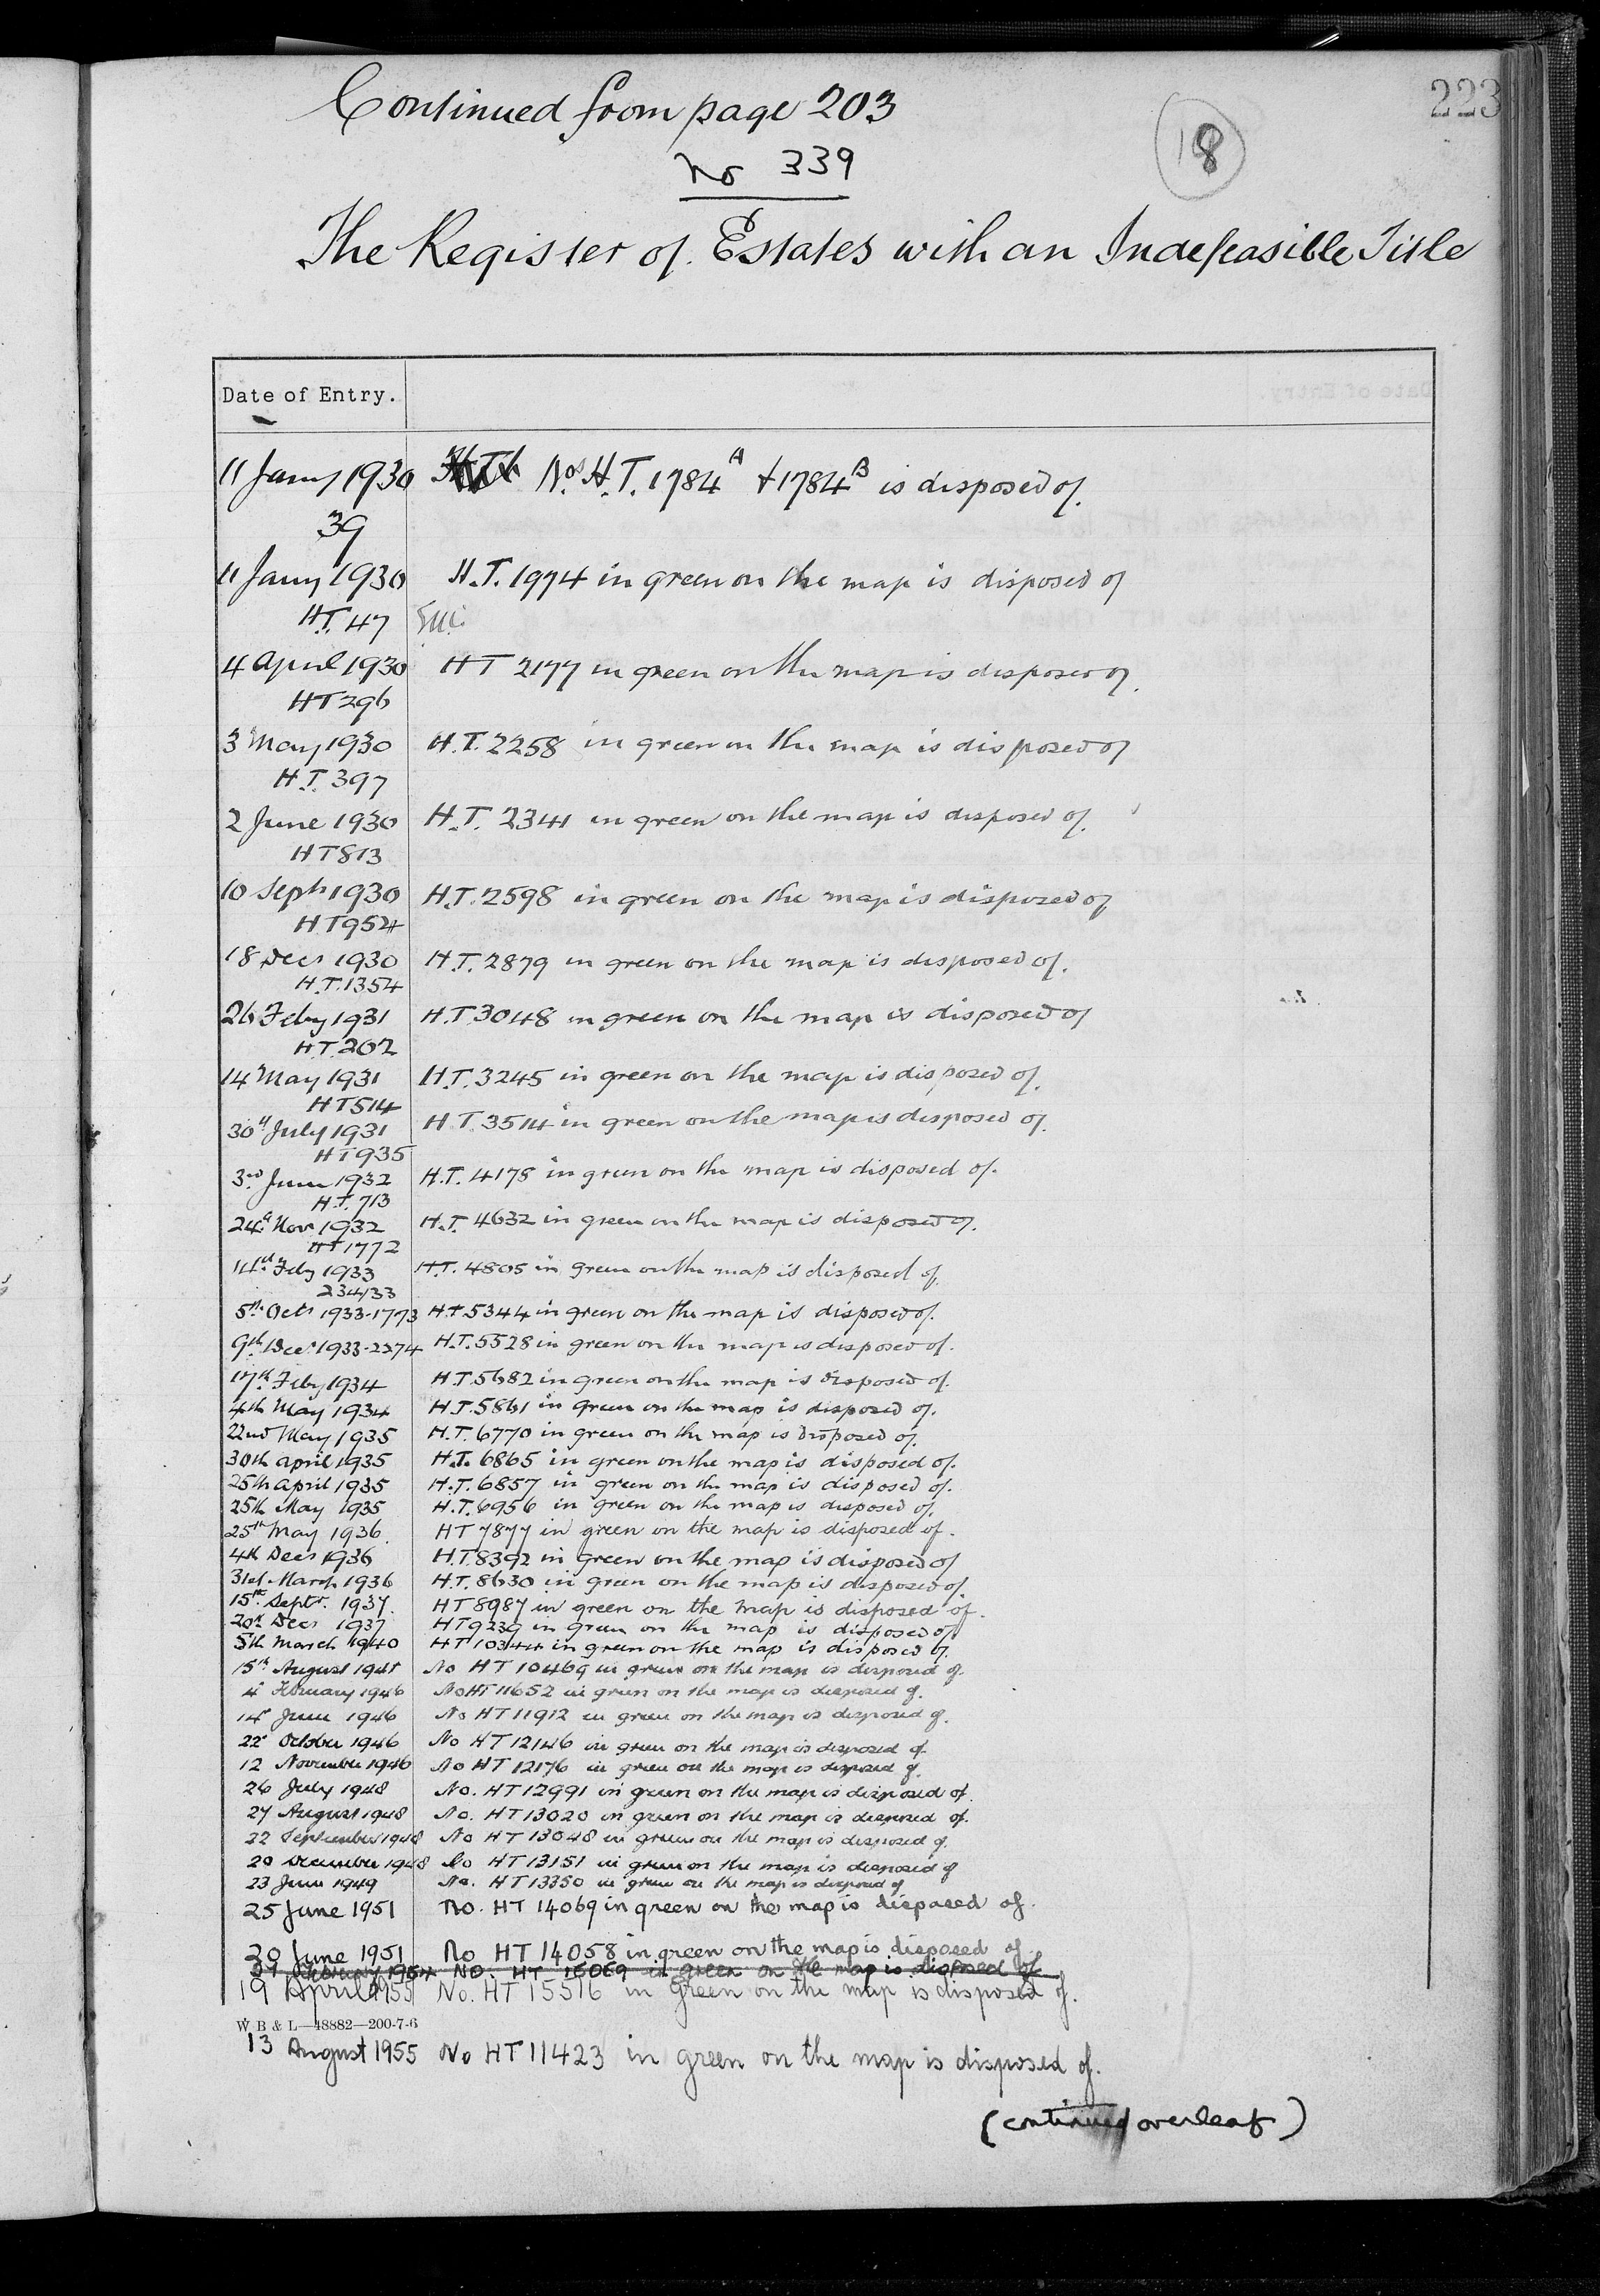 Continued from page 203
223
No 339
18
The Register of Estates with an Indefeasible Title
Date of Entry.
11 Jany 1930 Nos. H.T. 1784A + 1784B is disposed of.
39
11 Jany 1930 H.T. 1974 in green on the map is disposed of
H.T. 47
4 April 1930 HT 2177 in green on the map is disposed of.
HT 296
3 May 1930 H.T. 2258 in green on the map is disposed of
H.T. 397
2 June 1930 H.T. 2341 in green on the map is disposed of.
HT 813
10 Sept 1930 H.T. 2598 in green on the map is disposed of
HT 954
18 Decr 1930 H.T. 2879 in green on the map is disposed of.
H.T. 1354
26 Feby 1931 H.T. 3048 in green on the map is disposed of
H.T. 202
14 May 1931 H.T. 3245 in green on the map is disposed of.
HT 514
30th July 1931 H T 3514 in green on the map is disposed of.
HT 935
3rd June 1932 H.T. 4178 in green on the map is disposed of.
H.T. 713
24th Nov 1932 H.T. 4632 in green on the map is disposed of.
HT 1772
14th Feby 1933 H.T. 4805 in green on the map is disposed of
234/33
5th Octr 1933-1773 H.T. 5344 in green on the map is disposed of.
9th Decr 1933-2274 H.T. 5528 in green on the map is disposed of.
17th Feby 1934 H.T. 5682 in green on the map is disposed of.
4th May 1934 H.T. 5861 in green on the map is disposed of.
22nd May 1935 H.T. 6770 in green on the map is disposed of.
30th April 1935 H.T. 6865 in green on the map is disposed of.
25th April 1935 H.T. 6857 in green on the map is disposed of.
25th May 1935 H.T. 6956 in green on the map is disposed of.
25th May 1936 HT 7877 in green on the map is disposed of.
4th Decr 1936 H.T. 8392 in green on the map is disposed of
31st March 1936 H.T. 8630 in green on the map is disposed of.
15th Septr. 1937. HT 8987 in green on the map is disposed of.
20th Decr 1937 HT 9239 in green on the map is disposed of
5th March 1940 HT 10344 in green on the map is disposed of.
15th August 1941 No HT 10469 in green on the map is disposed of.
4th February 1946 No HT 11652 in green on the map is disposed of.
14th June 1946 No HT 11912 in green on the map is disposed of.
22d October 1946 No HT 12146 in green on the map is disposed of.
12 November 1946 No HT 12176 in green on the map is disposed of.
26 July 1948 No. HT 12991 in green on the map is disposed of.
27 August 1948 No. HT 13020 in green on the map is disposed of.
22 September 1948 No HT 13048 in green on the map is disposed of.
20 December 1948 No HT 13151 in green on the map is disposed of
23 June 1949 No. HT 13350 in green on the map is disposed of
25 June 1951 No. HT 14069 in green on the map is disposed of.
30 June 1951 No HT 14058 in green on the map is disposed of.
February 1954 NO. HT 15069 in green on the map is disposed of
19 April 1955 No. HT 15516 in green on the map is disposed of.
W B & L—48882—200-7-6
13 August 1955 No HT 11423 in green on the map is disposed of.
(continued overleaf)